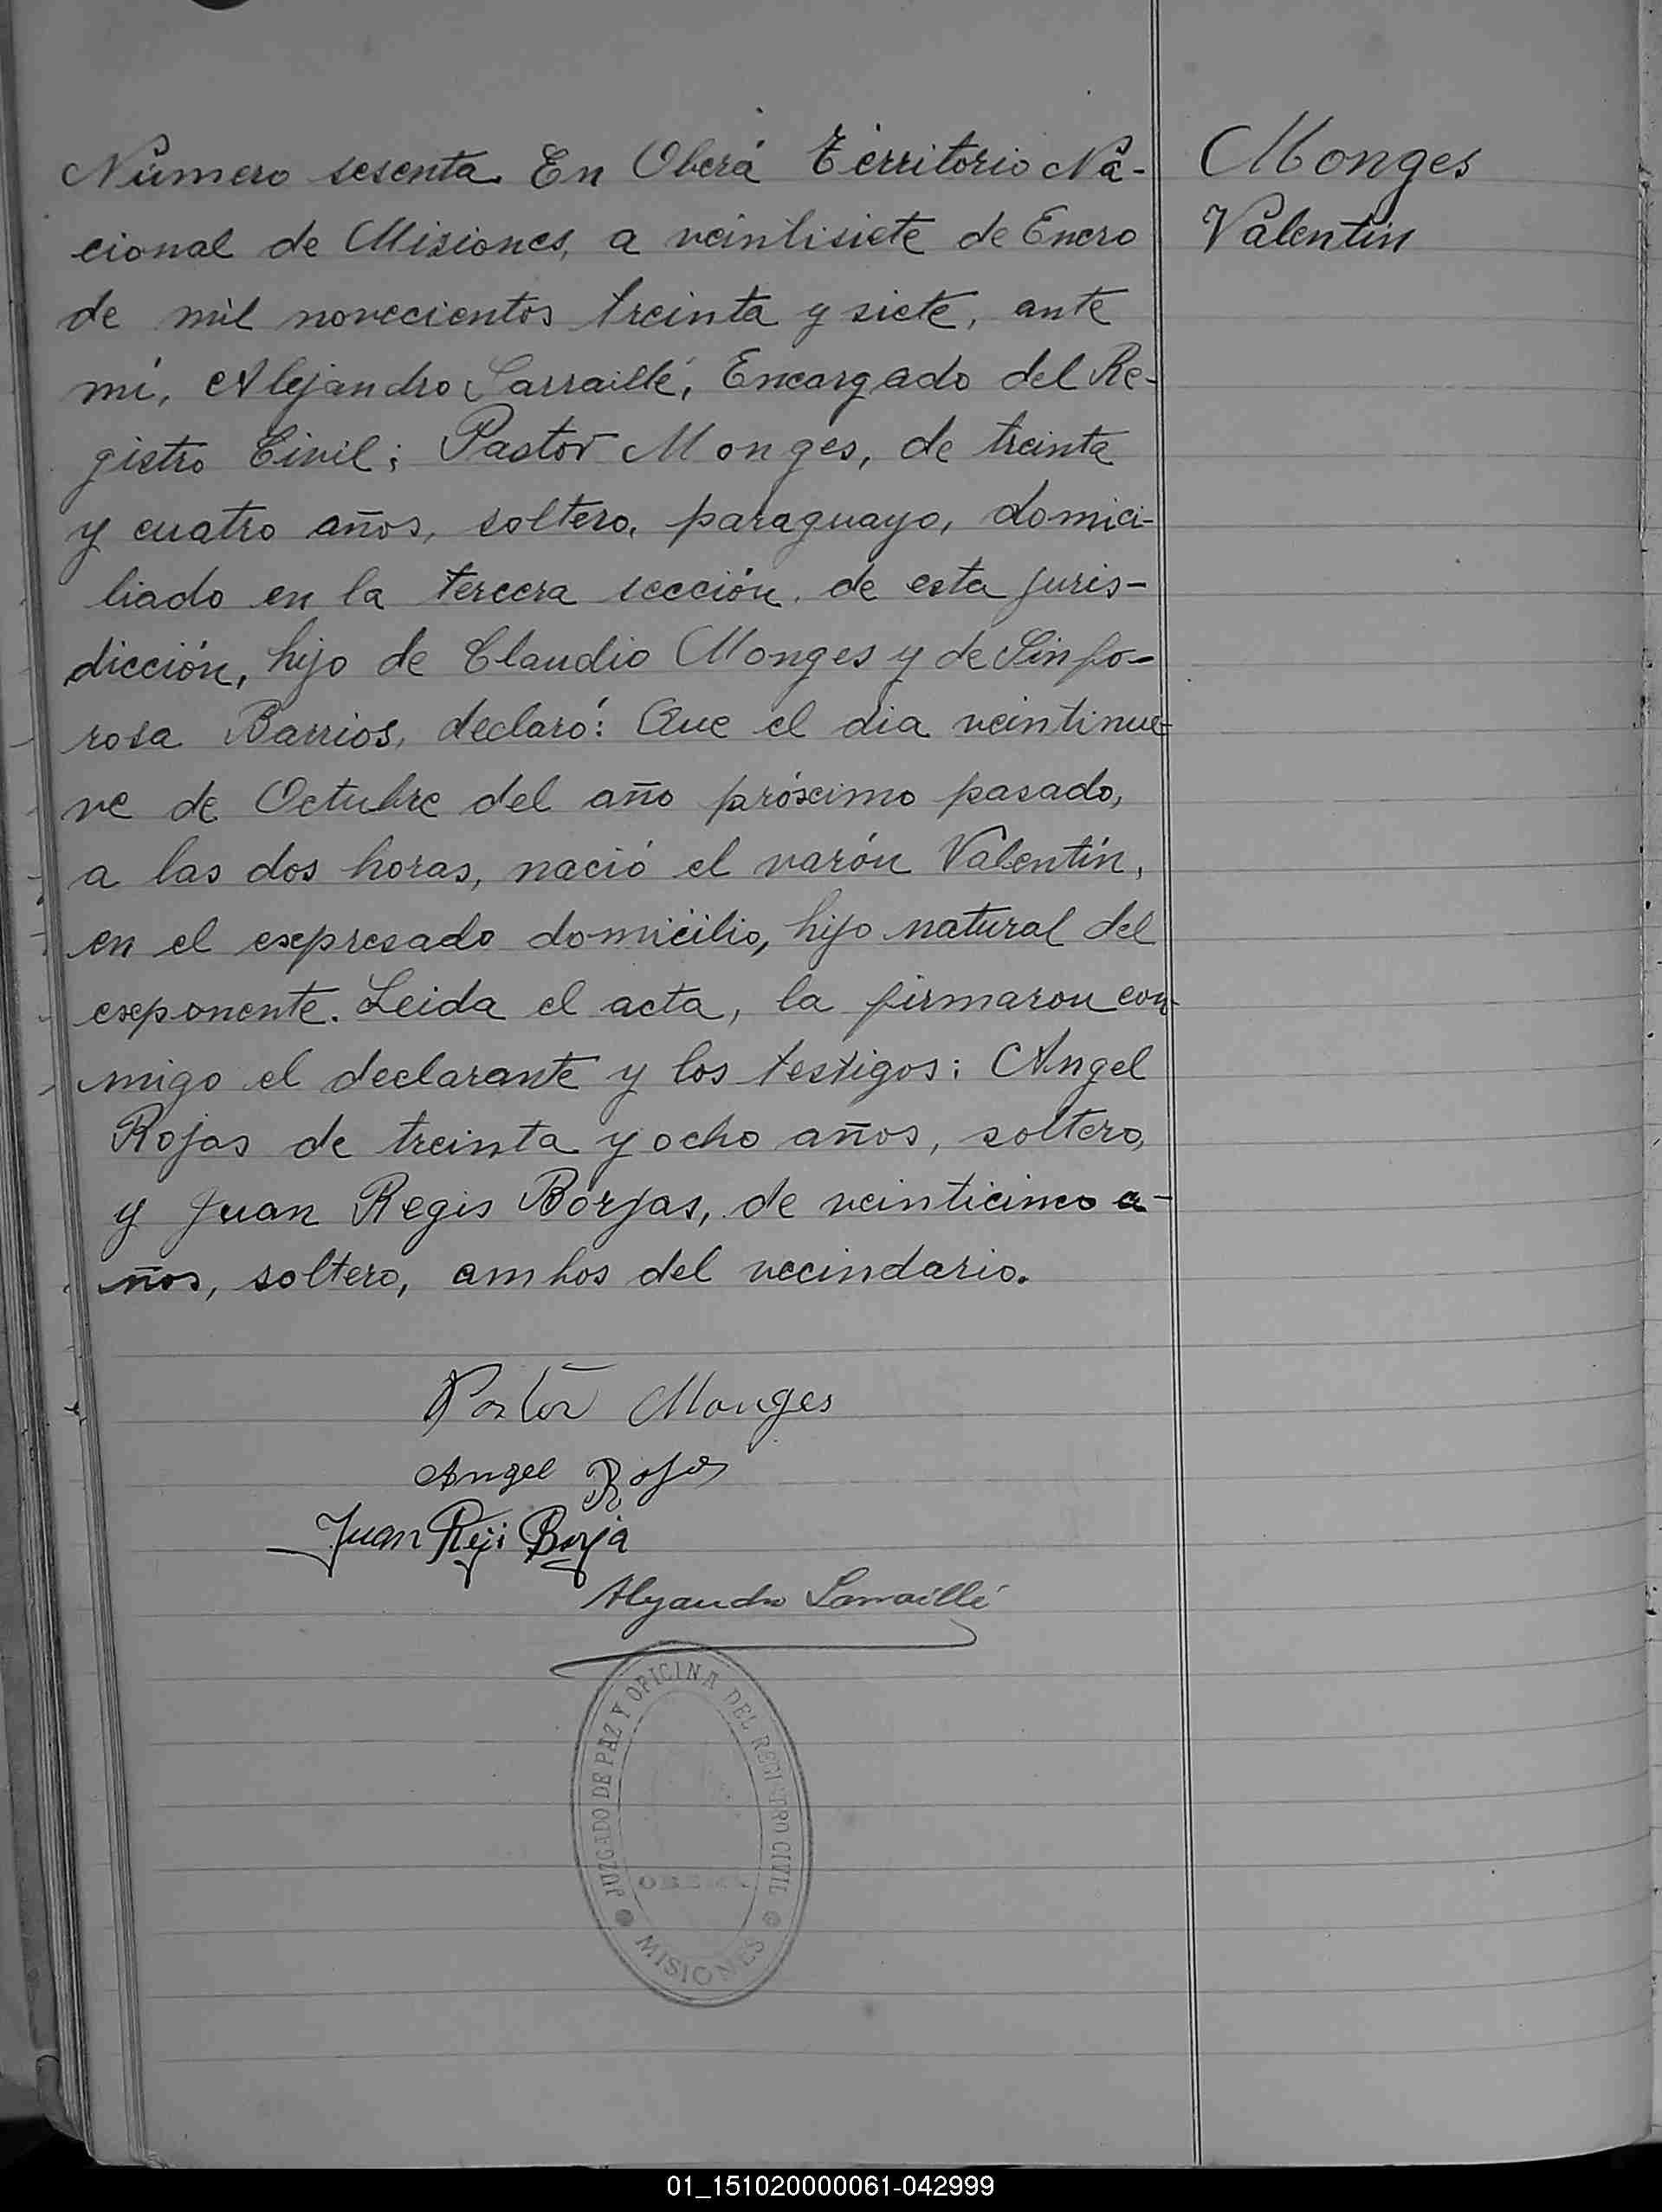 Número sesenta. En Oberá Territorio Na-
cional de Misiones, a veintisiete de Enero
de mil novecientos treinta y siete, ante
mí, Alejandro Larraillé, Encargado del Re-
gistro Civil; Pastor Monges, de treinta
y cuatro años, soltero, paraguayo, domici-
liado en la tercera sección de esta juris-
dicción, hijo de Claudio Monges y de Sinfo-
rosa Barrios, declaró: Que el dia veintinue-
ve de Octubre del año próximo pasado,
a las dos horas, nació el varón Valentín,
en el expresado domicilio, hijo natural del
exponente. Leida el acta, la firmaron con-
migo el declarante y los testigos: Angel
Rojas de treinta y ocho años, soltero,
y Juan Regis Borjas, de veinticinco a-
ños, soltero, ambos del vecindario.
Monges
Valentín
Pastor Monges
Angel Rojas
Juan Reji Borja
Alejandro Larraillé
JUZGADO DE PAZ Y OFICINA DEL REGISTRO CIVIL
OBERA
MISIONES
01_151020000061-042999